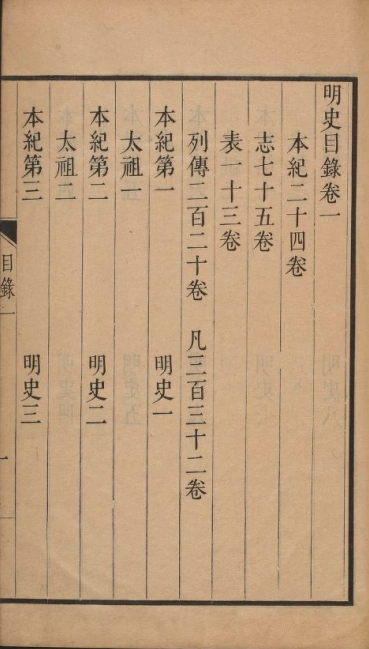 明史目錄卷一
本紀二十四卷
志七十五卷
表一十三卷
列傳二百二十卷　凡三百三十二卷
本紀第一　明史一
太祖一
本紀第二　明史二
太祖二
本紀第三　明史三
目錄一
一